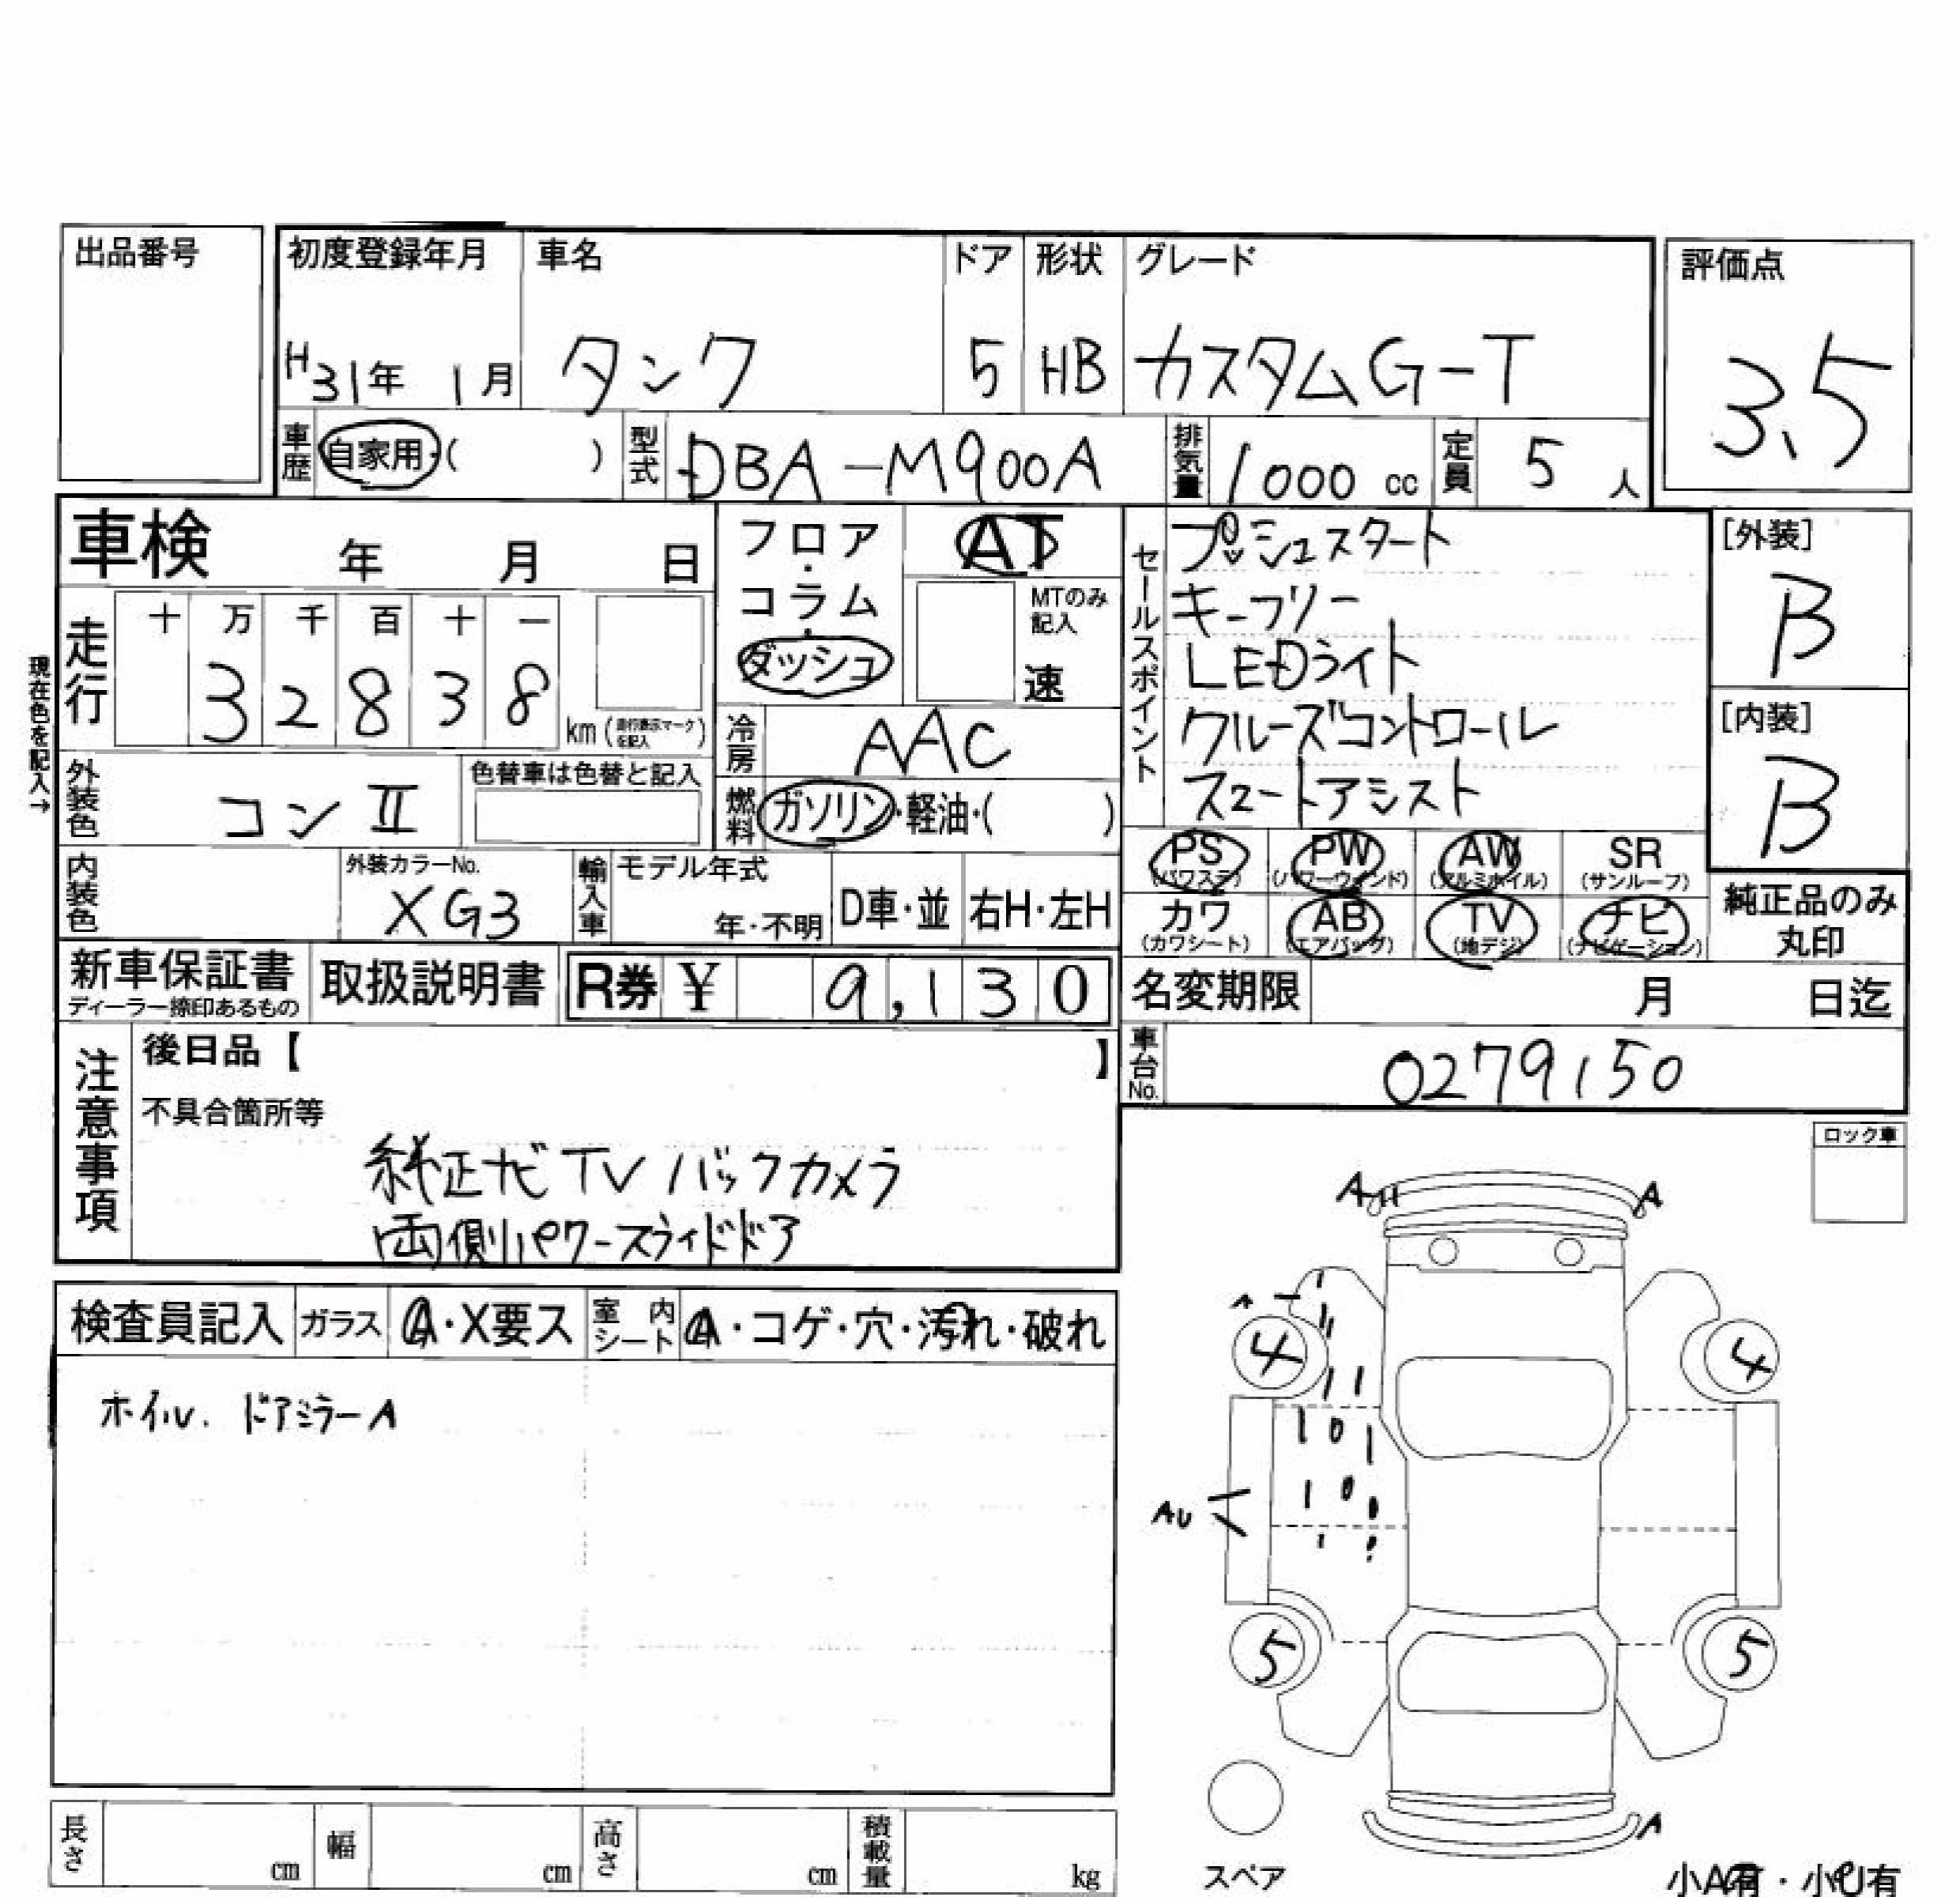 出品番号
初度登録年月 車名 ドア 形状 グレード 評価点
H31年 1月 タンク 5 HB カスタムG-T 3.5
車歴 自家用・( ) 型式 DBA-M900A 排気量 1000 cc 定員 5 人
車検 年 月 日
フロア・コラム・ダッシュ
AT
MTのみ記入
速
走行 十 万 千 百 十 一
3 2 8 3 8 km (走行表示マークを記入)
現在色を記入→
冷房 AAC
外装色 コンII 色替車は色替と記入
燃料 ガソリン・軽油・( )
内装色 外装カラーNo. XG3 輸入車 モデル年式 年・不明 D車・並 右H・左H
新車保証書 ディーラー捺印あるもの 取扱説明書 R券 ¥ 9,130
セールスポイント
プッシュスタート
キーフリー
LEDライト
クルーズコントロール
スマートアシスト
[外装]
B
[内装]
B
PS (パワステ) PW (パワーウィンド) AW (アルミホイル) SR (サンルーフ)
カワ (カワシート) AB (エアバッグ) TV (地デジ) ナビ (ナビゲーション)
純正品のみ丸印
名変期限 月 日迄
車台No. 0279150
注意事項
後日品【 】
不具合箇所等
純正ナビTV バックカメラ
両側パワースライドドア
ロック車
検査員記入 ガラス A・X要ス 室内シート A・コゲ・穴・汚れ・破れ
ホイル、ドアミラーA
A A
A
4 4
AU
5 5
A
スペア
小A有・小U有
長さ cm 幅 cm 高さ cm 積載量 kg